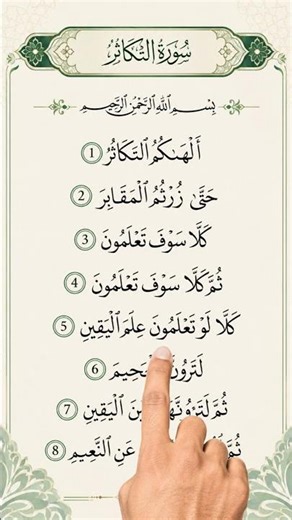 سُورَةُ التَّكَاثُرِ
بِسْمِ ٱللَّهِ ٱلرَّحْمَٰنِ ٱلرَّحِيمِ
أَلْهَىٰكُمُ ٱلتَّكَاثُرُ ①
حَتَّىٰ زُرْتُمُ ٱلْمَقَابِرَ ②
كَلَّا سَوْفَ تَعْلَمُونَ ③
ثُمَّ كَلَّا سَوْفَ تَعْلَمُونَ ④
كَلَّا لَوْ تَعْلَمُونَ عِلْمَ ٱلْيَقِينِ ⑤
⑥
ثُمَّ ٱلْيَقِينِ ⑦
عَنِ ٱلنَّعِيمِ ⑧